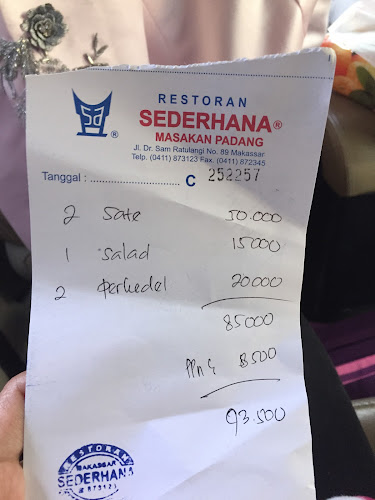 RESTORAN
SEDERHANA®
MASAKAN PADANG
Jl. Dr. Sam Ratulangi No. 89 Makassar
Telp. (0411) 873123 Fax. (0411) 872345
Sa ®
Tanggal : .............................. C 252257
2 Sate 50.000
1 Salad 15000
2 perkedel 20000
85000
PPn 8500
93.500
RESTORAN
MAKASSAR
SEDERHANA
873121